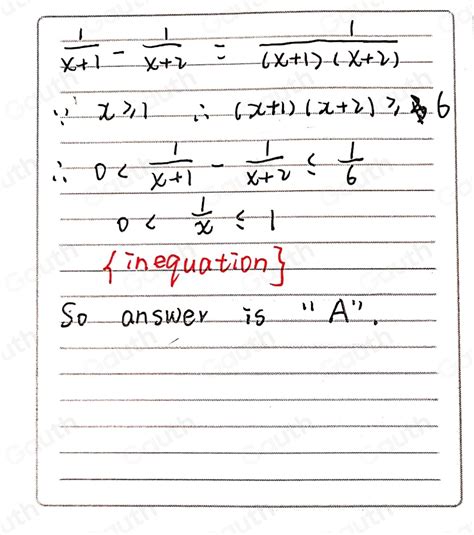 1/(x+1) - 1/(x+2) = 1/((x+1)(x+2))
∵ x ≥ 1 ∴ (x+1)(x+2) ≥ 6
∴ 0 < 1/(x+1) - 1/(x+2) ≤ 1/6
0 < 1/x ≤ 1
{inequation}
So answer is "A".